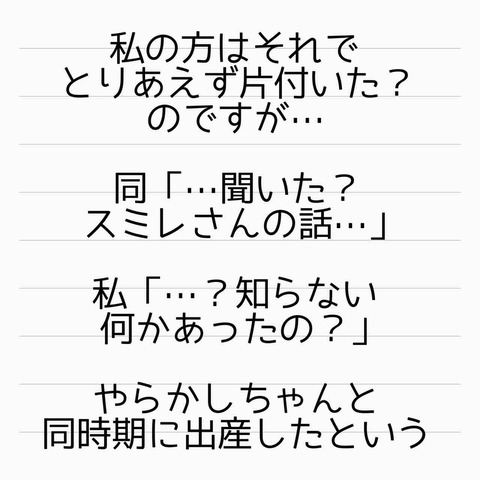 私の方はそれで
とりあえず片付いた？
のですが…
同「…聞いた？
スミレさんの話…」
私「…？知らない
何かあったの？」
やらかしちゃんと
同時期に出産したという